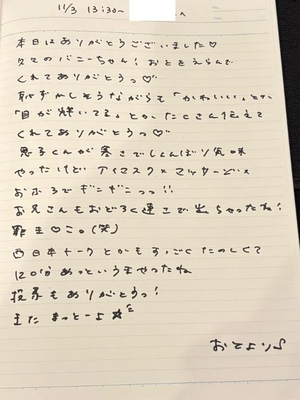 11/3 13:30~ へ
本日はありがとうございました♡
久々のバニーちゃん！おとそえらんで
くれてありがとうっ♡
恥ずかしそうながらも「かわいい」とか、
「目が輝いてる」とか、たくさん伝えて
くれてありがとうっ♡
息子くんが寒さでしょんぼり気味
やったけど アイマスク×マッサージ×
おふろでギンギンっっ!!
お兄さんもおどろく速さで出ちゃったね！
罪ま♡こ。(笑)
西日本トークとかもすっごくたのしくて
120分あっというまやったね
投票もありがとうっ！
また まっとーよ☆
おとより♪